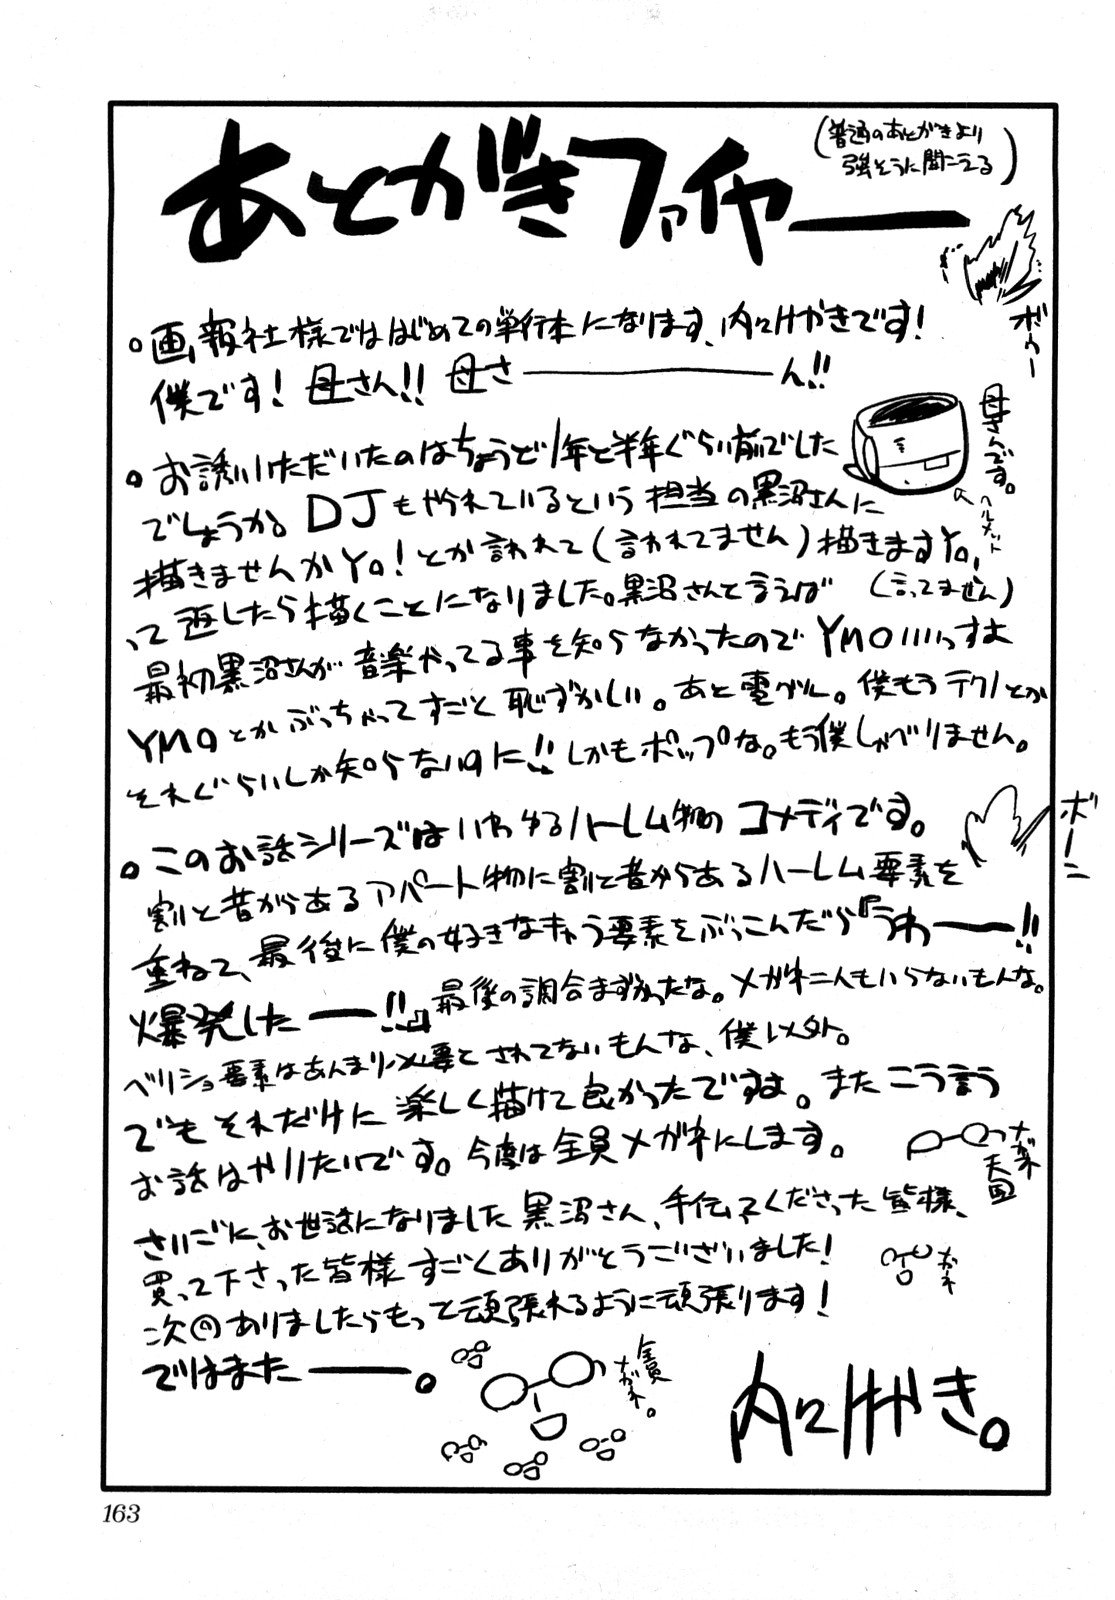 あとがきファイヤー
(普通のあとがきより
強そうに聞こえる)
ボゥー
。画報社様でははじめての単行本になります、内々けやきです!
僕です! 母さん!! 母さ―――ん!!
母さんです。
ヘルメット
。お誘いいただいたのはちょうど1年と半年ぐらい前でした
でしょうか。DJもやれているという担当の黒沼さんに
描きませんかYo!とか言われて(言われてません)描きますYo,
って返したら描くことになりました。黒沼さんと言えば (言ってません)
最初黒沼さんが音楽やってる事を知らなかったのでYMOいいっすよ
YMOとかぶっちゃってすごく恥ずかしい。あと電グル。僕もうテクノとか
それぐらいしか知らないのに!!しかもポップな。もう僕しゃべりません。
。このお話シリーズはいわゆるハーレム物のコメディです。
ボーン
割と昔からあるアパート物に割と昔からあるハーレム要素を
重ねて、最後に僕の好きなキャラ要素をぶっこんだら『うわー!!
爆発したー!!』最後の調合まずかったな。メガネ二人もいらないもんな。
ベリショ要素はあんまり必要とされてないもんな、僕以外。
でもそれだけに楽しく描けて良かったですよ。またこう言う
お話はやりたいです。今度は全員メガネにします。
メガネ
天国
さいごに、お世話になりました黒沼さん、手伝てくださった皆様、
買って下さった皆様すごくありがとうございました!
次回ありましたらもって頑張れるように頑張ります!
ではまたー。
全員
メガネ。
内々けやき。
163